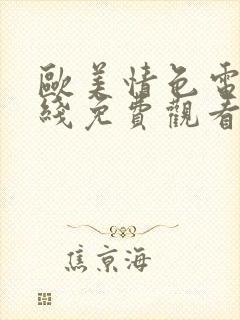 歐美情色電
綫免費觀看
焦京海